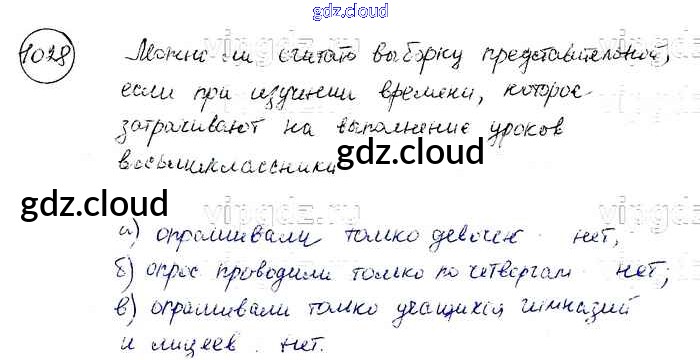 gdz.cloud
1028
Можно ли считать выборку представительной,
если при изучении времени, которое
затрачивают на выполнение уроков
восьмиклассники
gdz.cloud
gdz.cloud
а) опрашивали только девочек нет,
б) опрос проводили только по четвергам нет;
в) опрашивали только учащихся гимназий
и лицеев. нет.